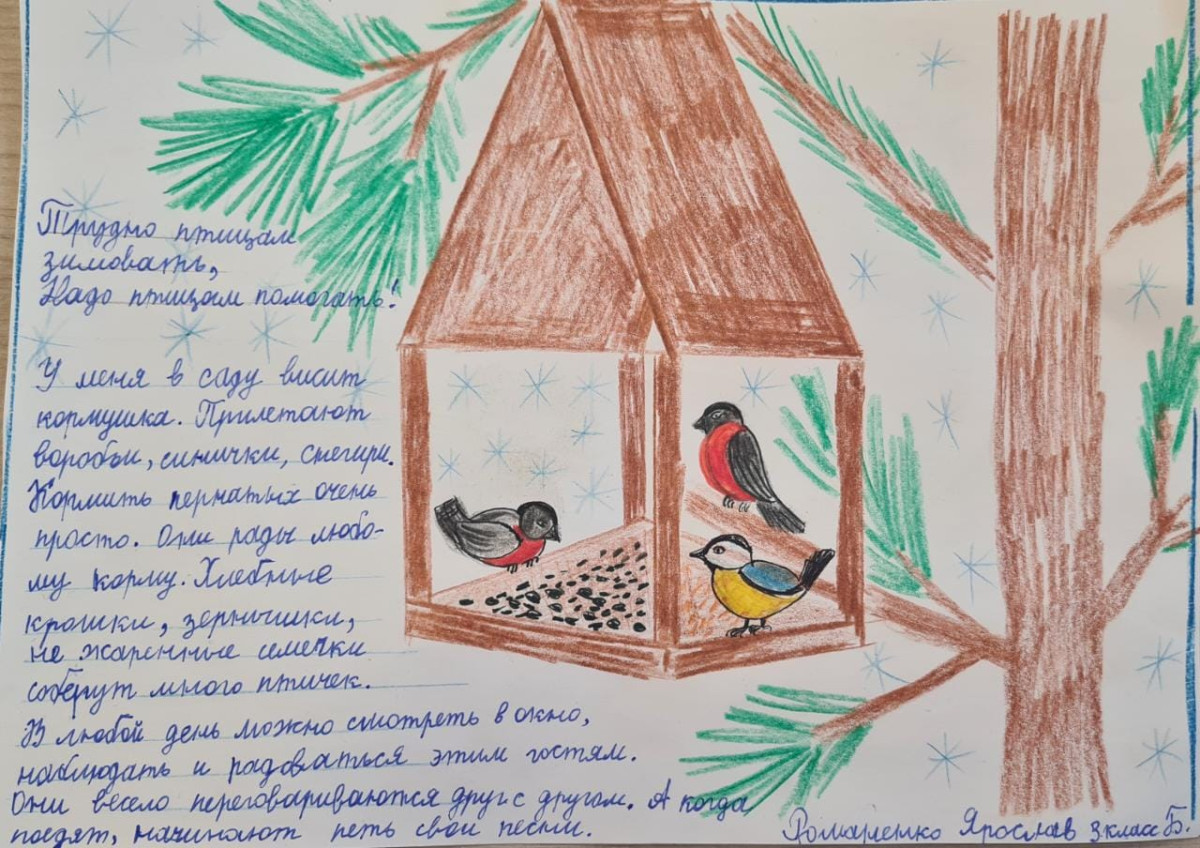 Трудно птицам
зимовать,
Надо птицам помогать!
У меня в саду висит
кормушка. Прилетают
воробьи, синички, снегири.
Кормить пернатых очень
просто. Они рады любо-
му корму. Хлебные
крошки, зернышки,
не жаренные семечки
соберут много птичек.
В любой день можно смотреть в окно,
наблюдать и радоваться этим гостям.
Они весело переговариваются друг с другом. А когда
поедят, начинают петь свои песни.
Романенко Ярослав 3 класс Б.